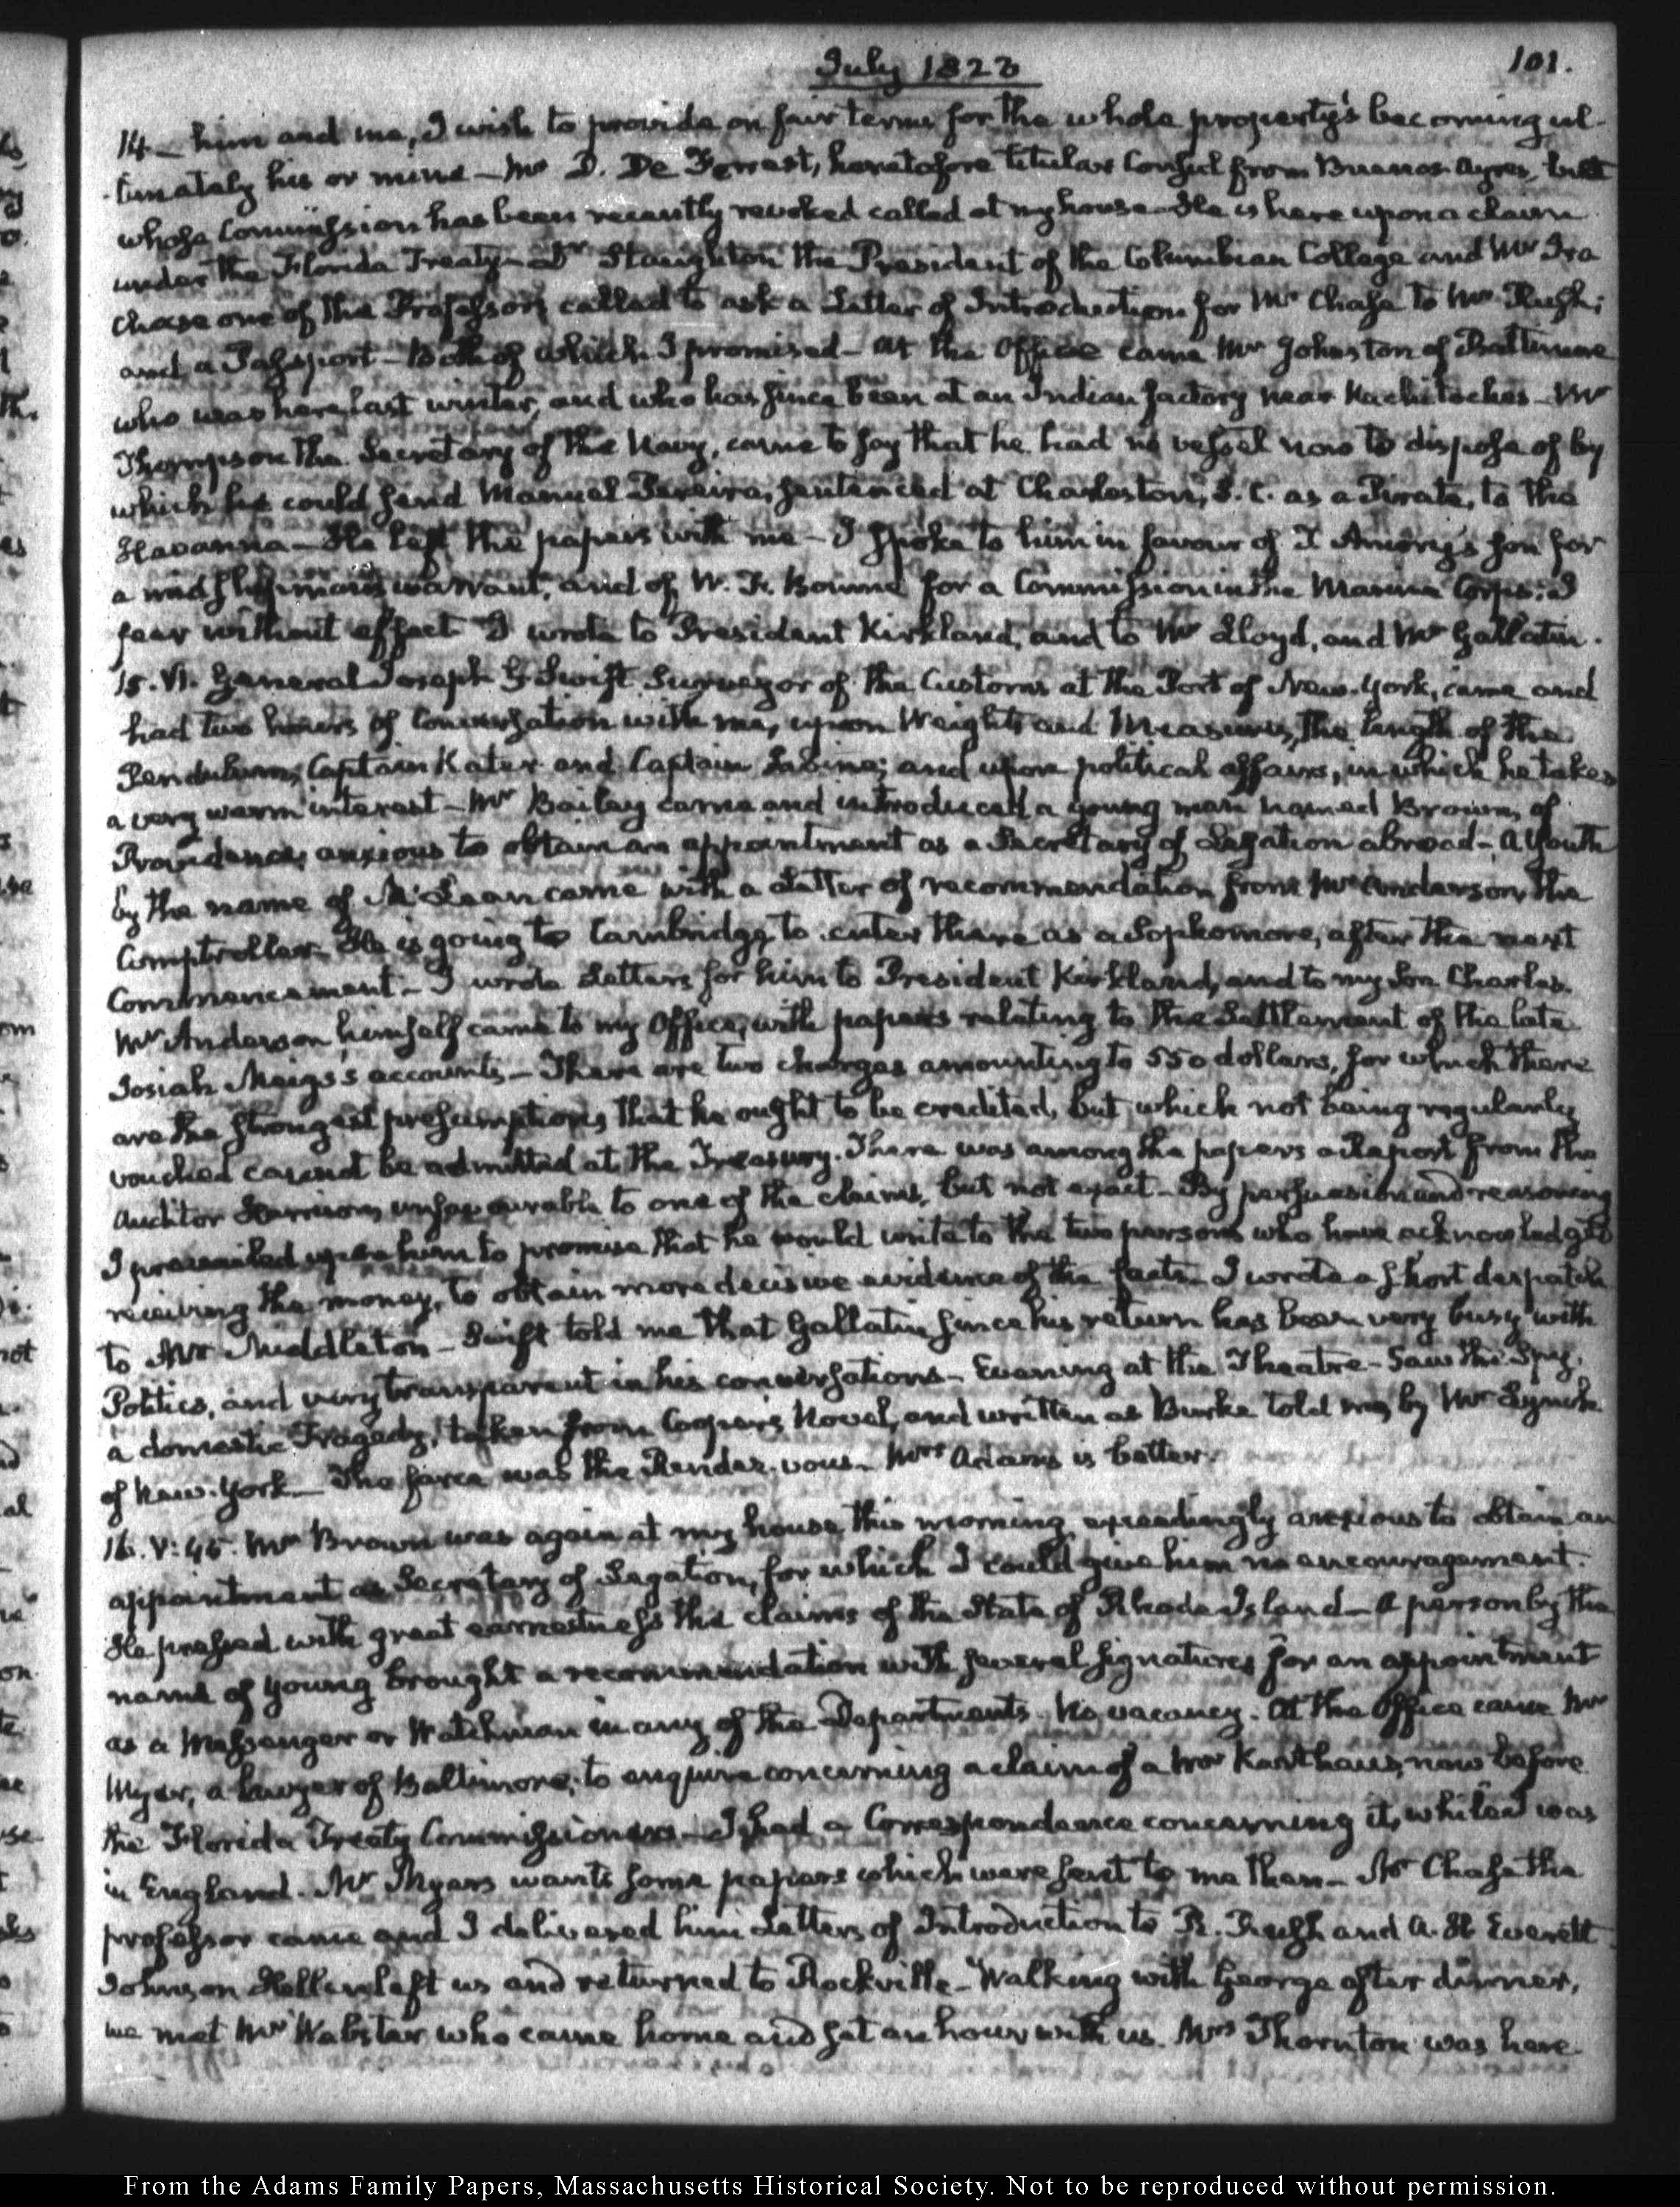 July 1823
101.
14— him and me, I wish to provide on fair terms for the whole property's becoming ul-
timately his or mine— Mr D. De Forrest, heretofore titular Consul from Buenos-Ayres, but
whose Commission has been recently revoked called at my house— He is here upon a claim
under the Florida Treaty— Dr Staughton the President of the Columbian College and Mr Ira
Chase one of the Professors called to ask a Letter of Introduction for Mr Chase to Mr Rush;
and a Passport— Both of which I promised— At the Office came Mr Johnston of Baltimore
who was here last winter, and who has since been at an Indian factory near Nachitoches— Mr
Thompson the Secretary of the Navy, came to say that he had no vessel now to dispose of by
which he could send Manuel Pereira, sentenced at Charleston, S.C. as a Pirate, to the
Havanna— He left the papers with me— I spoke to him in favour of I Amory's son for
a midshipman's warrant, and of W. F. for a Commission in the Marine Corps: I
fear without effect— I wrote to President Kirkland, and to Mr Lloyd, and Mr Gallatin.
15. VI. General Joseph G Swift Surveyor of the Customs at the Port of New-York, came and
had two hours of conversation with me, upon Weights and Measures, the length of the
Pendulum, Captain Kater and Captain Sabine; and upon political affairs, in which he takes
a very warm interest— Mr Bailey came and introduced a young man named Brown, of
Providence, anxious to obtain an appointment as a Secretary of Legation abroad— A Youth
by the name of McLean came with a Letter of recommendation from Mr Anderson, the
Comptroller— He is going to Cambridge to enter there as a Sophomore, after the next
Commencement— I wrote Letters for him to President Kirkland, and to my Son Charles.
Mr Anderson himself came to my Office, with papers relating to the Settlement of the late
Josiah Meigs's accounts— There are two charges amounting to 550 dollars, for which there
are the strongest presumptions that he ought to be credited, but which not being regularly
vouched cannot be admitted at the Treasury. There was among the papers a Report from the
Auditor Harrison, unfavourable to one of the claims, but not exact— By persuasion and reasoning
I prevailed upon him to promise that he would write to the two persons who have acknowledged
receiving the money, to obtain more decisive evidence of the facts— I wrote a short despatch
to Mr Middleton— Swift told me that Gallatin since his return has been very busy with
Politics, and very transparent in his conversations— Evening at the Theatre— Saw the Spy,
a domestic Tragedy, taken from Cooper's Novel, and written as Burke told me, by Mr Lynch
of New-York— The farce was the Rendez-vous— Mrs Adams is better.
16. V:45. Mr Brown was again at my house this morning exceedingly anxious to obtain an
appointment as Secretary of Legation, for which I could give him no encouragement.
He pressed with great earnestness the claims of the State of Rhode-Island— A person by the
name of Young brought a recommendation with several signatures for an appointment
as a Messenger or Watchman in any of the Departments. No vacancy. At the Office came Mr
Myer, a lawyer of Baltimore, to enquire concerning a claim of a Mr Karthaus, now before
the Florida Treaty Commissioners— I had a Correspondence concerning it, while I was
in England. Mr Myers wants some papers which were sent to me then— Mr Chase the
professor came and I delivered him Letters of Introduction to R. Rush and A. H Everett
Johnson Hellen left us and returned to Rockville— Walking with George after dinner,
we met Mr Webster who came home and sat an hour with us. Mrs Thornton was here
From the Adams Family Papers, Massachusetts Historical Society. Not to be reproduced without permission.